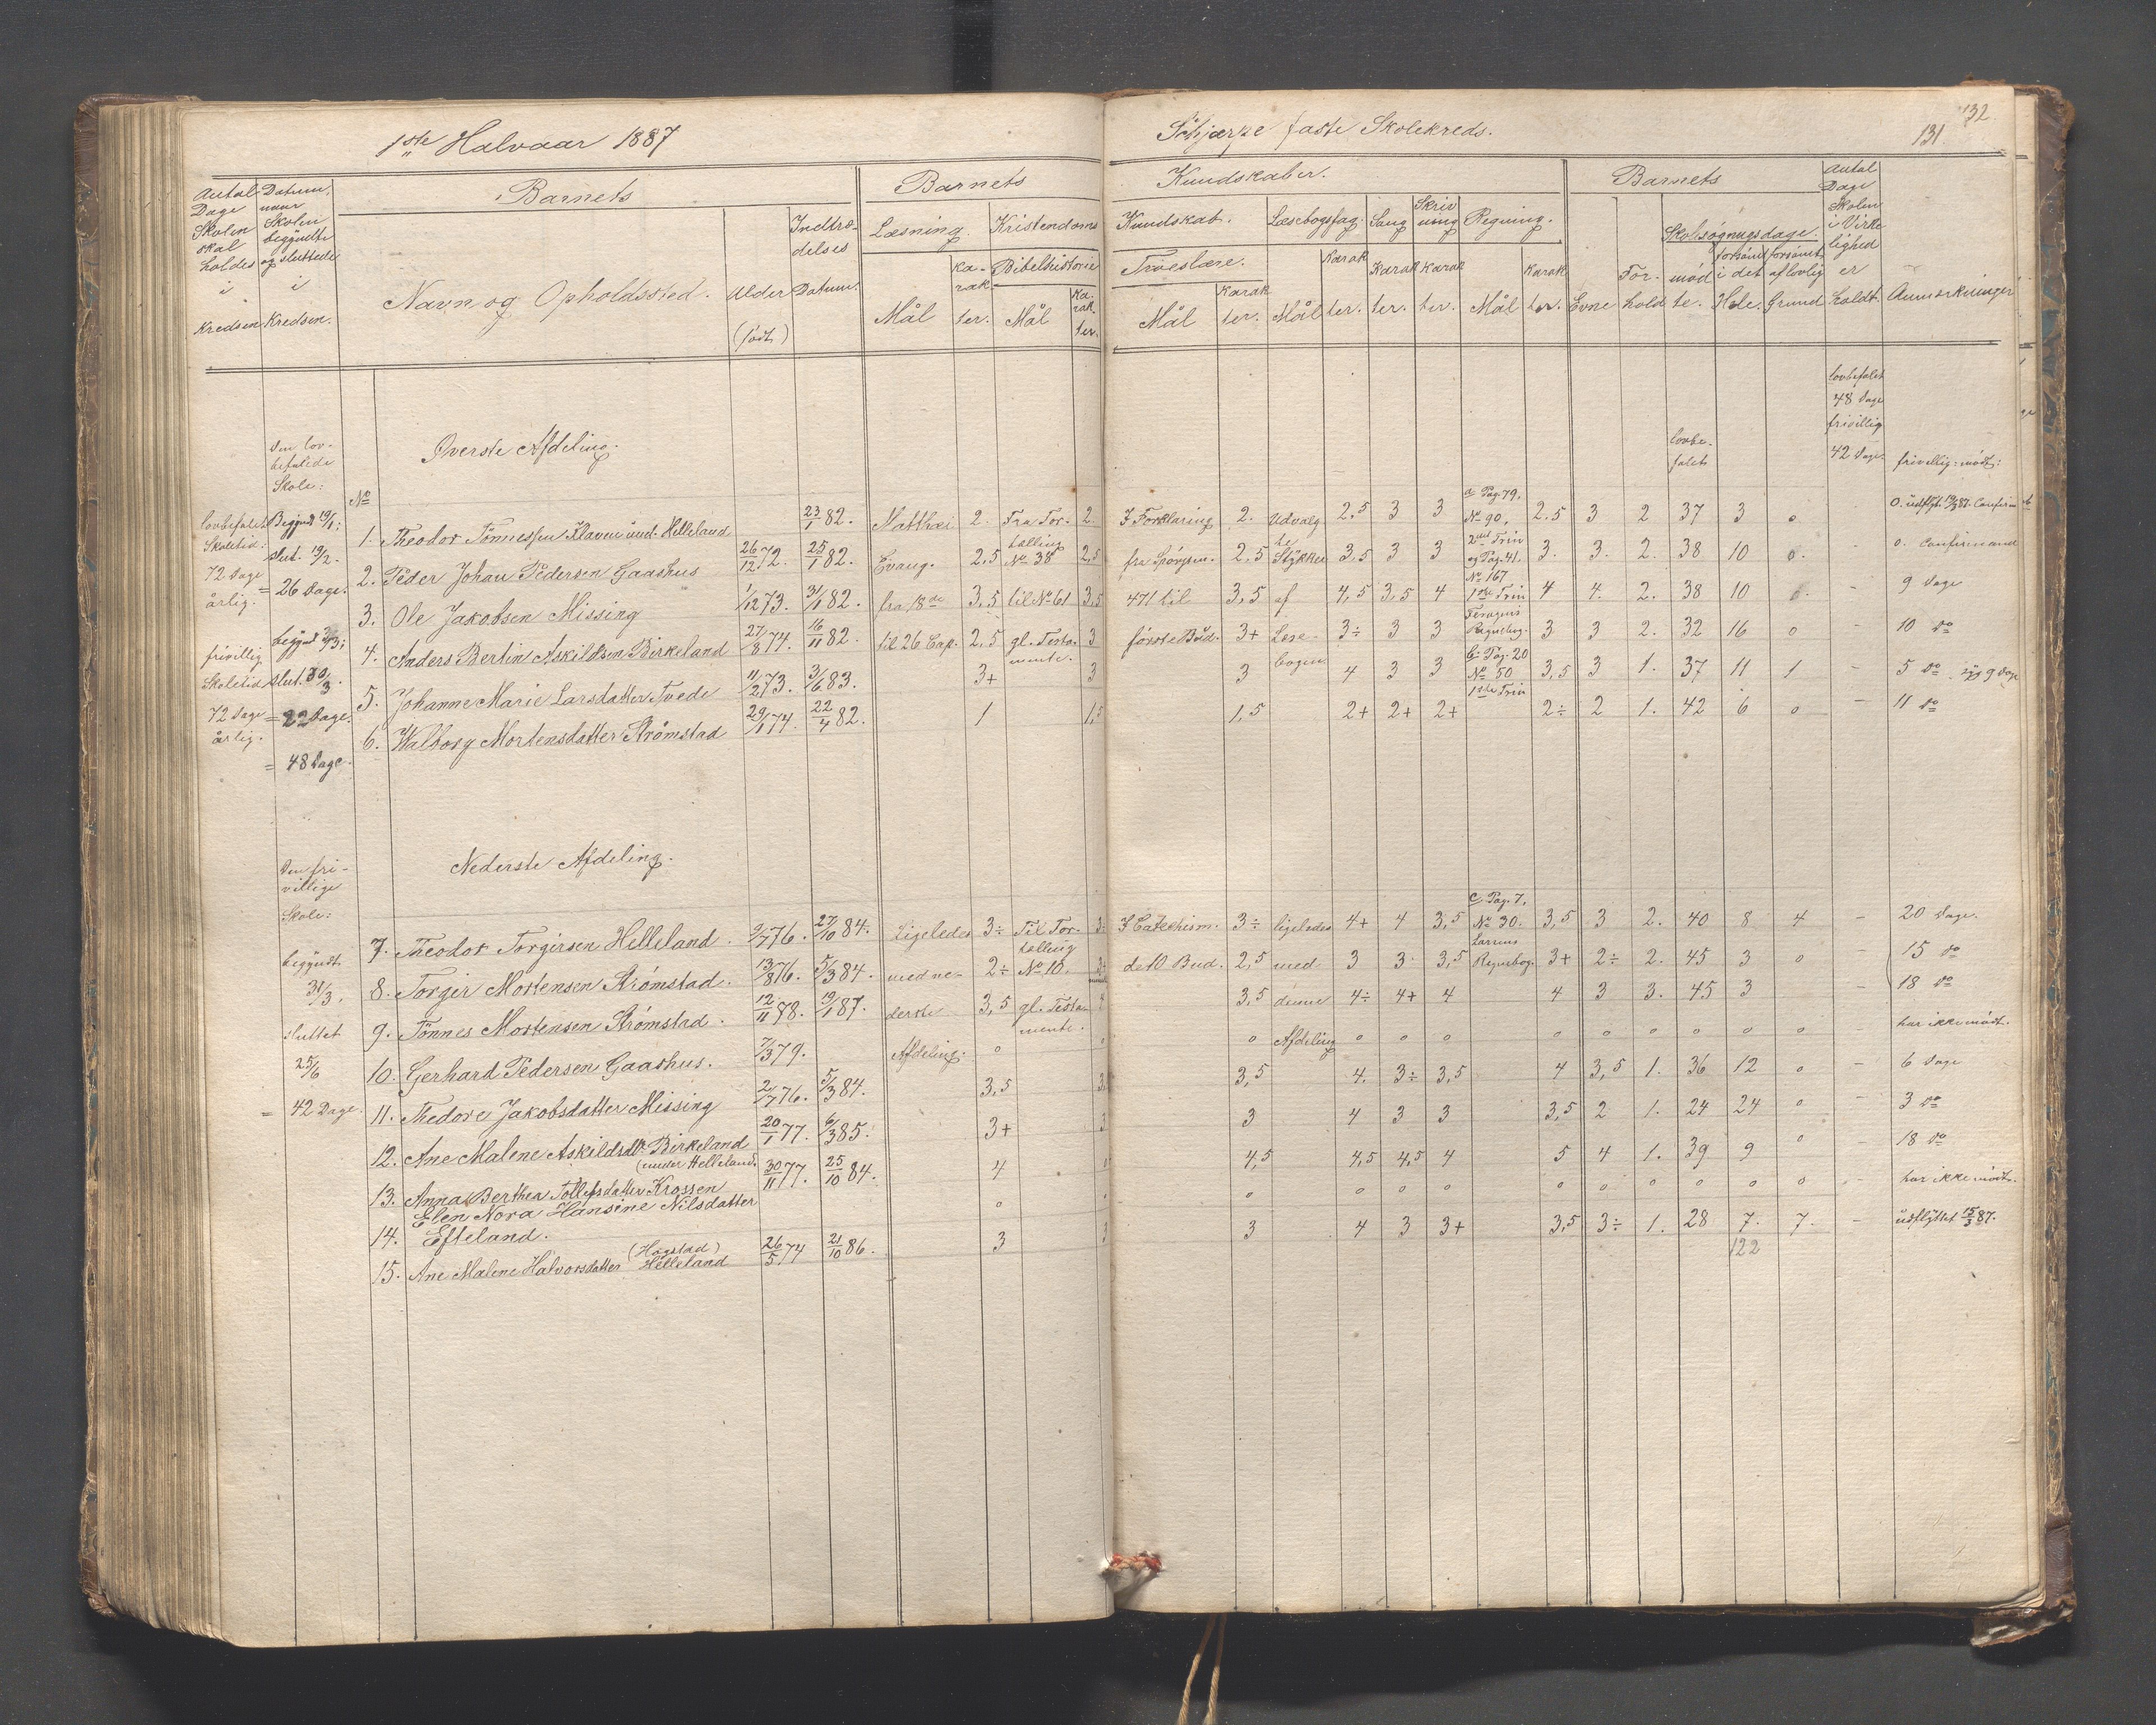 1ste Halvaar 1887
Schjærpe faste Skolekreds.
132
131
Antal Dage Skolen skal holdes i Kredsen
Datum, naar Skolen begyndte og sluttede i Kredsen.
Barnets
Navn og Opholdssted. Alder (født) Indtrædelses Datum.
Barnets
Læsning. Kristendoms
Mål Karakter. Bibelhistorie Mål Karakter.
Kundskaber.
Kundskab. Læsebogsfag. Sang Skrivning Regning.
Troeslære.
Mål Karakter. Mål Karakter. Karakter. Karakter. Mål Karakter.
Barnets
Evne Forhold Skolesøgnugsdage.
mødte. forsømt i det Hele. forsømt af lovlig Grund
Antal Dage Skolen i Virkelighed er holdt.
Anmærkninger
lovbefalet 48 Dage frivillig 42 Dage.
lovbefalet
frivillig: mødt:
Den lovbefalede Skole:
Øverste Afdeling.
No
lovbefalet Skoletid: 72 Dage årlig.
Begyndt 19/1; slut. 19/2. = 26 Dage.
frivillig Skoletid 72 Dage årlig.
begyndt 2/3; slut. 30/3. = 22 Dage.
= 48 Dage.
1. Theodor Tönnessen Klaven und. Helleland 23/1 82. Matthæi 2. Fra For- 2. I Forklaring 2. Udvalg 2,5 3 3 a Pag. 79, No 90, 2,5 3 2 37 3 0 - 0. udflyt. 19/2 87. Confirmant
2. Peder Johan Pedersen Gaashus 26/12 72. 25/1 82. Evang. 2,5 tælling No 38 2,5 fra Spörgsm. 2,5 te Stykker 3,5 3 3 2det Trin og Pag. 41, 3. 3. 2. 38 10 0. - 0. Confirmand
3. Ole Jakobsen Missing 1/12 73. 31/1 82. fra 18de 3,5 til No 61 3,5 471 til 3,5 af 4,5 3,5 4 No 167 1ste Trin 4 4. 2. 38 10 0. - 9 Dage
4. Anders Bertin Askildsen Birkeland 27/8 74. 16/11 82. til 26 Cap. 2,5 gl. Testa- 3 første Bud. 3+ Læse- 3÷ 3 3 Regnebog. 3 3 2. 32 16 0 - 10 do
5. Johanne Marie Larsdatter Tvede 11/2 73. 3/6 83. 3+ mente. 3 3 bogen 4 3 3 b: Pag. 20 No 50 3,5 3 1. 37 11 1 - 5 do
6. Walborg Mortensdatter Strømstad 29/1 74. 22/4 82. 1 1,5 1,5 2+ 2+ 2+ 1ste Trin 2÷ 2 1. 42 6 0 - 11 do
Den frivillige Skole:
Nederste Afdeling.
begyndt 31/3. sluttet 25/6 = 42 Dage.
7. Theodor Torgirsen Helleland. 2/7 76. 27/10 84. Ligeledes 3÷ Til For- 3 I Catechism. 3÷ ligeledes 4+ 4 3,5 C. Pag. 7, No 30. 3,5 3 2. 40 8 4 - 20 Dage.
8. Torgir Mortensen Strömstad. 13/8 76. 5/3 84. med ne- 2÷ tælling No 10. 3 de 10 Bud. 2,5 med 3 3 3,5 Larsens Regnebog. 3+ 2÷ 2. 45 3 0 - 15 do
9. Tönnes Mortensen Strömstad. 12/11 78. 19/1 87. derste 3,5 gl. Testa- 4 3,5 denne 4÷ 4+ 4 4 3 3. 45 3 - 18 do
10. Gerhard Pedersen Gaashus. 7/3 79. Afdeling. 0 mente. 0 0 Afdeling 0 0 0 0 0 0 0 0 0 - har ikke mødt.
11. Thedore Jakobsdatter Missing 2/7 76. 5/3 84. 3,5 3 3,5 4. 3÷ 3,5 4 3,5 1. 36 12 0 - 6 Dage
12. Ane Malene Askildsdtr. Birkeland 20/1 77. 6/3 85. 3+ 3 3 4 3 3 3,5 2 1. 24 24 0 - 3 do
(under Helleland.
13. Anna Berthea Tollefsdatter Krossen 30/11 77. 25/10 84. 4 4,5 4,5 4,5 4 5 4 1. 39 9 0 - 18 do
Elen Nora Hansine Nilsdatter
14. Efteland. 0 0 0 0 0 0 0 0 0 0 0 0 - har ikke mødt.
15. Ane Malene Halvorsdatter (Hogstad) Helleland 26/5 74 21/10 86. 3 3 3 4 3 3+ 3,5 3÷ 1. 28 7. 7. - udflyttet 15/3 87.
122